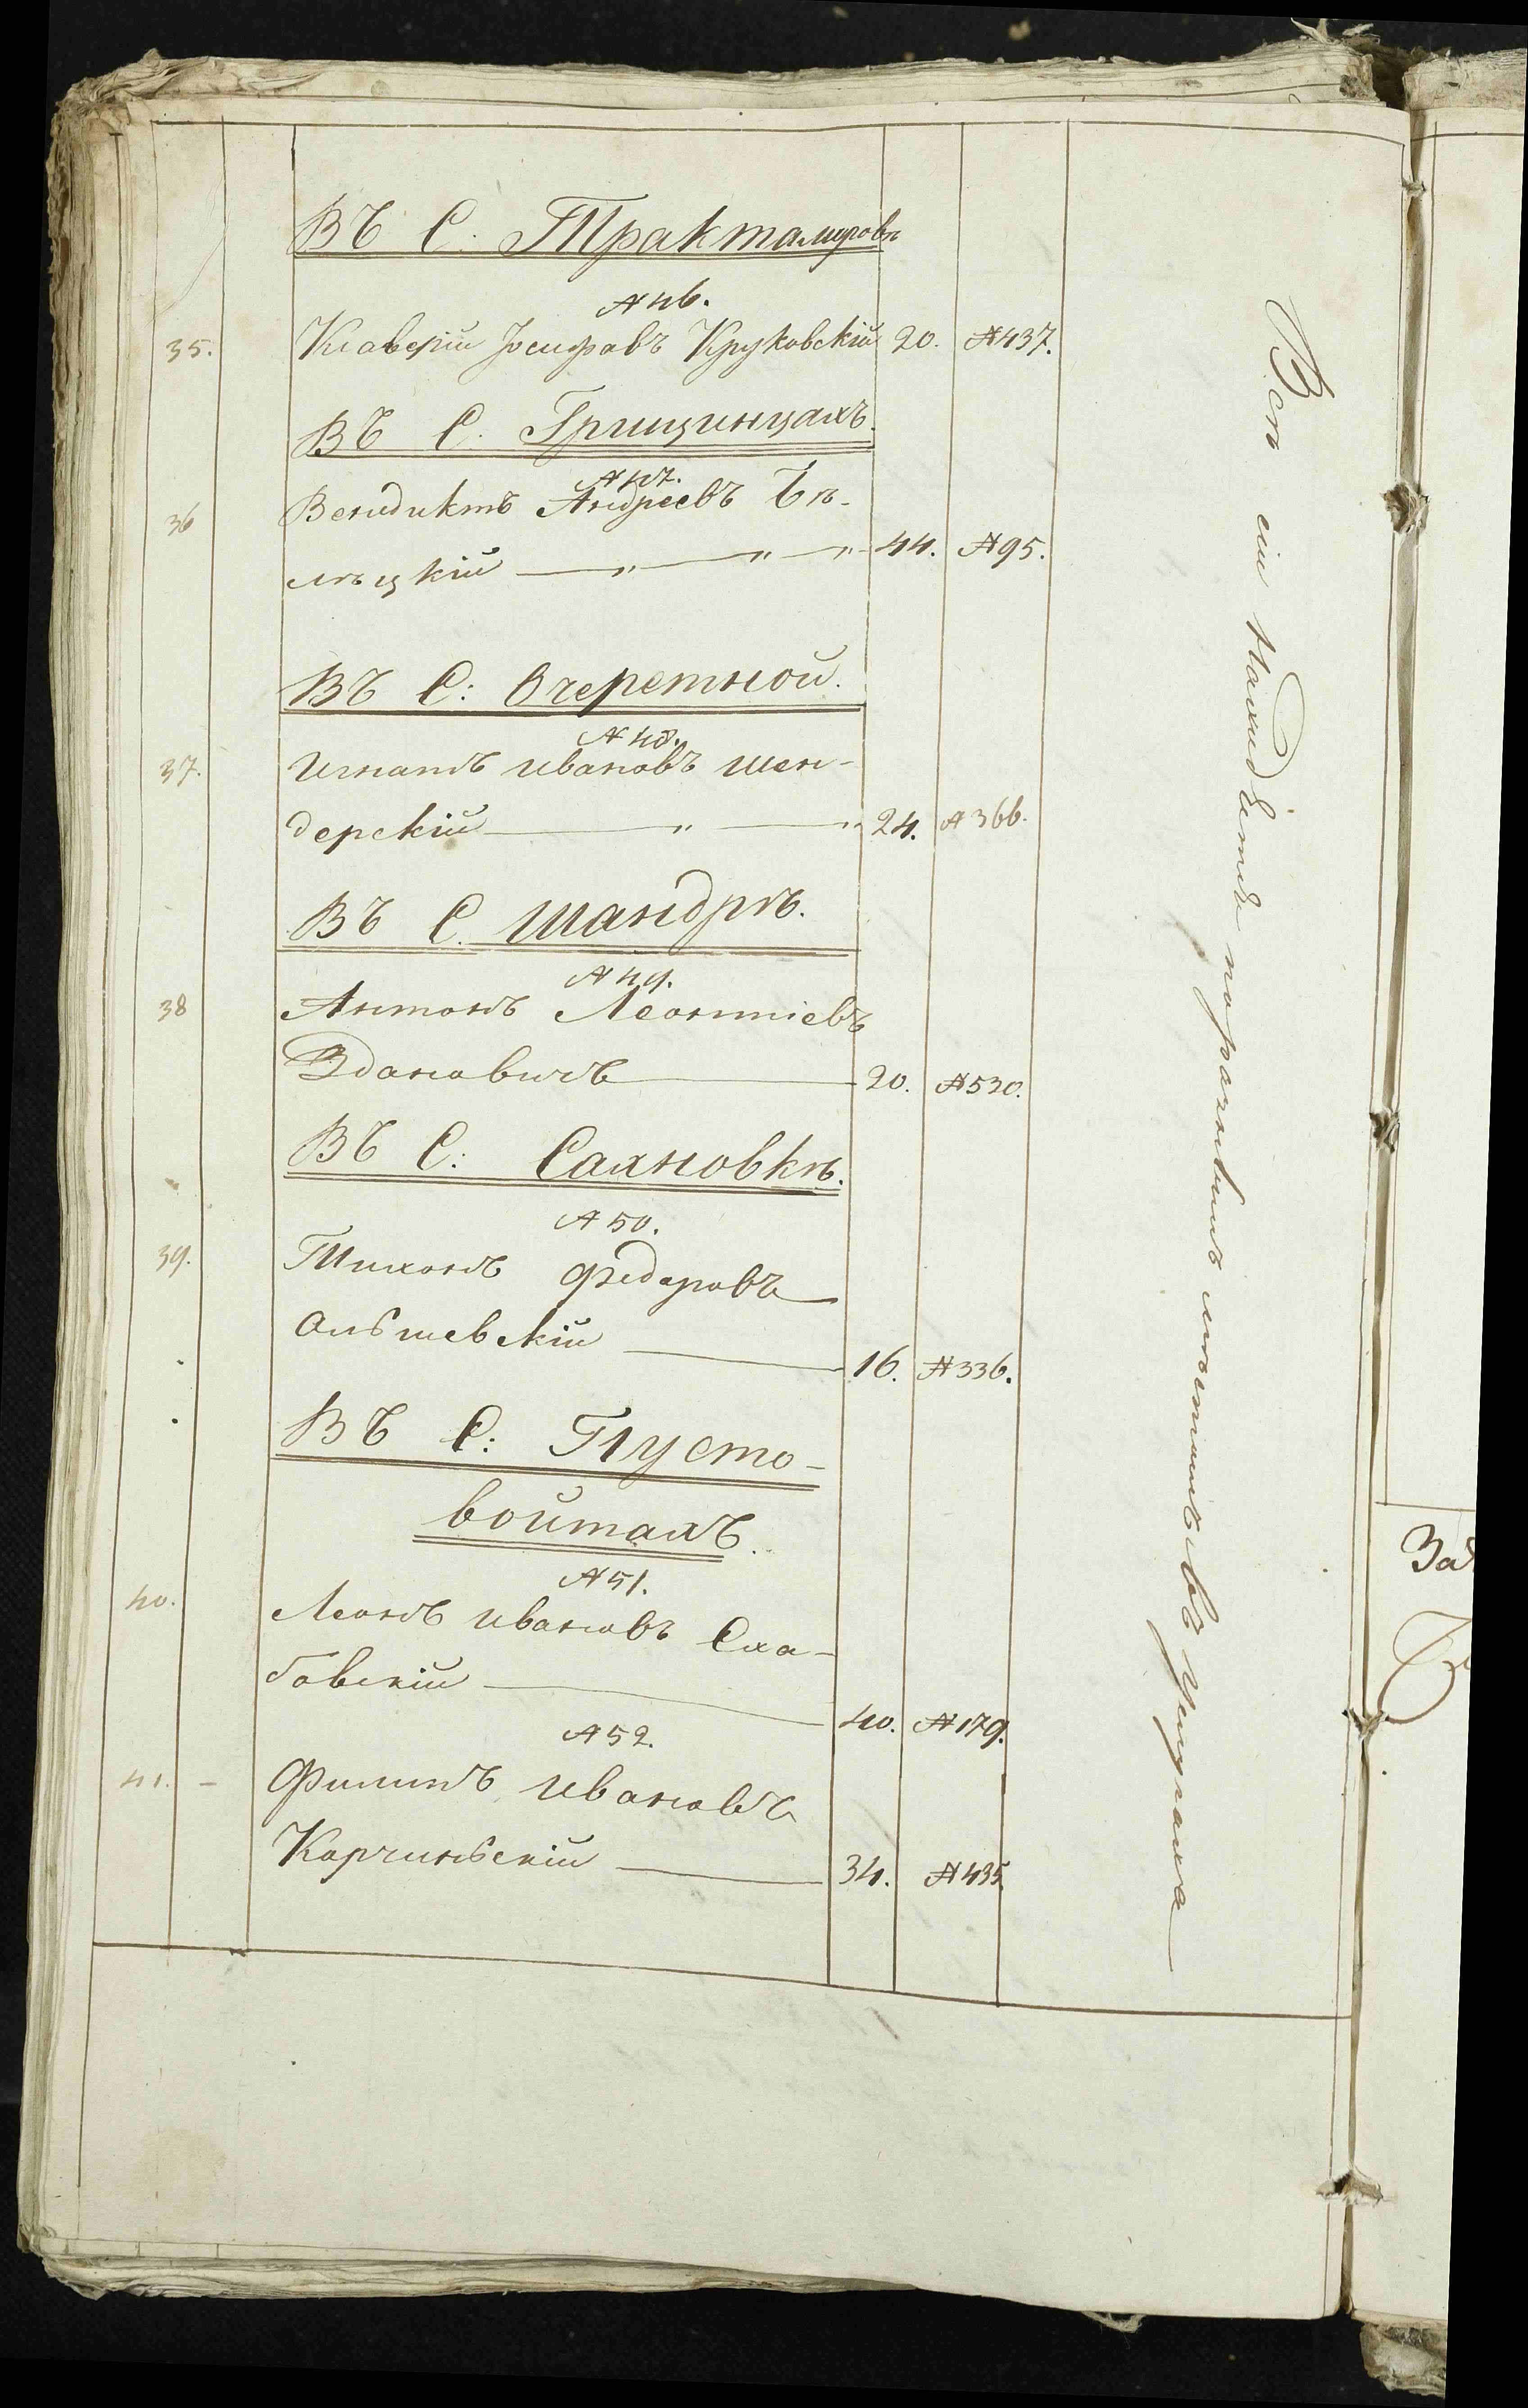 Въ С. Трактамировѣ
№ 46.
35. Ксаверій Іосифовъ Круковскій 20. №437.
Въ С. Грищинцахъ.
№ 47.
36 Венидиктъ Андреевъ Бѣ-
лѣцкій — „ — „ — „ 44. №95.
Въ С: Очеретной.
№ 48.
37. Игнатъ Ивановъ Шен-
дерскій — „ — „ 24. №366.
Въ С. Шандрѣ.
№ 49.
38 Антонъ Леонтіевъ
Здановичъ — 20. №520.
Въ С: Саяновкѣ.
№ 50.
39. Тихонъ Федоровъ
Ольшевскій — 16. №336.
Въ С: Пусто-
войтахъ.
№ 51.
40. Леонъ Ивановъ Сха-
бовскій — 40. №179.
№ 52.
41. – Филипъ Ивановъ
Корчинскій — 34. №435.
Всѣ сіи находятся поразнымъ мѣстамъ въ
Зав